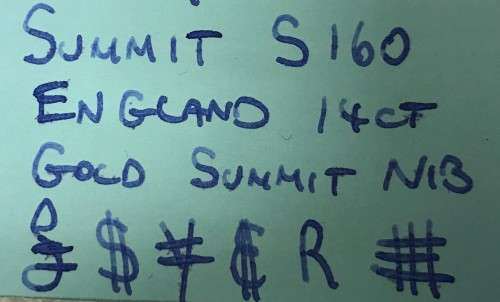 SUMMIT S160
ENGLAND 14CT
GOLD SUMMIT NIB
£ $ ¥ ₡ R #